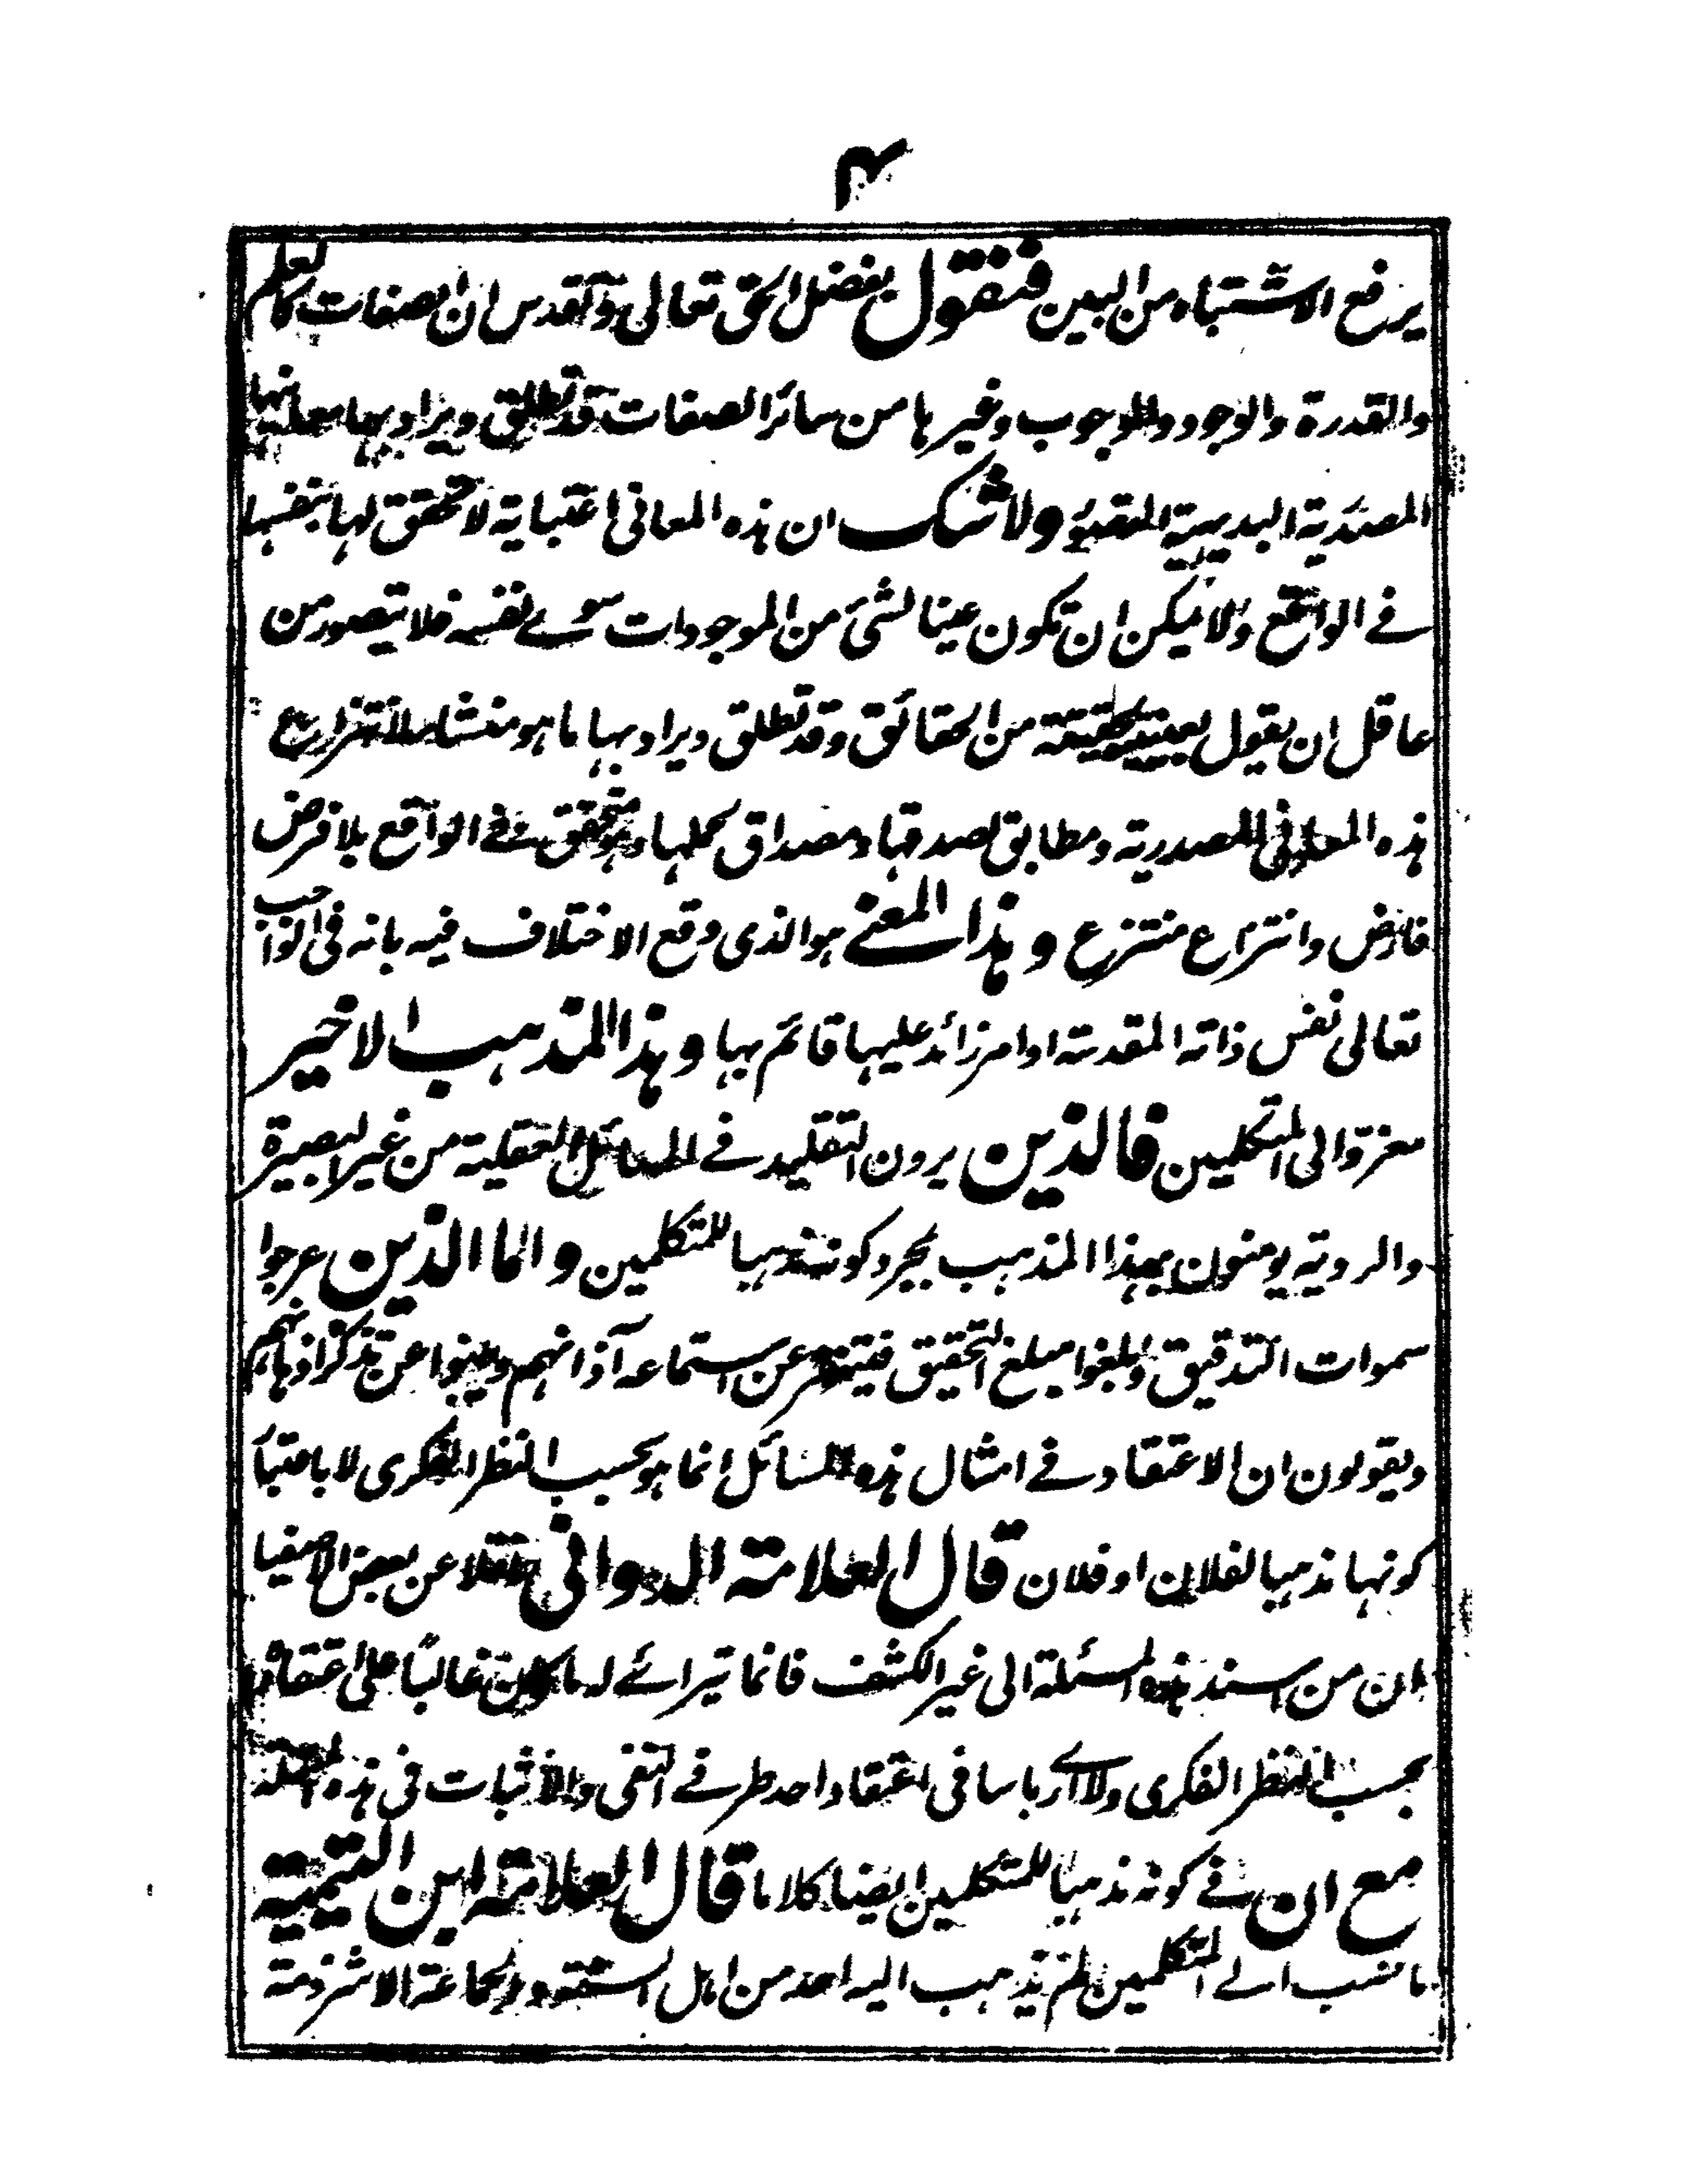 ۴
يرفع الاشتباه من البين فنقول بفضل الحق تعالى وتقدس ان الصفات كالعلم
والقدرة والوجود والوجوب وغيرها من سائر الصفات قد تطلق ويراد بها معانيها
المصدرية البديهية ولا شك ان هذه المعاني اعتبارية لا تحقق لها بنفسها
في الواقع ولا يمكن ان تكون عينا لشئ من الموجودات سوے نفسه فلا يتصور من
عاقل ان يقول بعينية حقيقة من الحقائق وقد تطلق ويراد بها ما هو منشا لانتزاع
هذه المعاني المصدرية ومطابق لصدقها ومصداق لحملها وهو متحقق في الواقع بلا فرض
فارض وانتزاع منتزع وهذا المعنے هو الذى وقع الاختلاف فيه بانه فى الواجب
تعالى نفس ذاته المقدسة او امر زائد عليها قائم بها وهذا المذهب الاخير
معزوّ الى المتكلمين فالذين يرون التقليد في المسائل العقلية من غير البصيرة
والروية يومنون بهذا المذهب بمجرد كونه مذهبا للمتكلمين واما الذين عرجوا
سموات التدقيق وبلغوا مبلغ التحقيق عن استماعه آذانهم وينبوا عن تذكره اذهانهم
ويقولون ان الاعتقاد في امثال هذه المسائل انما هو بحسب النظر الفكرى لا باعتبار
كونها مذهبا لفلان او فلان قال العلامة الدوانى ناقلا عن بعض الاصفيا
ان من اسند هذه المسئلة الى غير الكشف فانما يترائے له ما كان غالبًا على اعتقاده
بحسب النظر الفكرى ولا ارے باسا فى اعتقاد احد طرفے النفى والاثبات فى هذه المسئلة
مع ان في كونه مذهبا للمتكلمين ايضا كلاما قال العلامة ابن التيمية
ما نسب الے المتكلمين لم يذهب اليه احد من اهل السنة والجماعة الا شرذمة